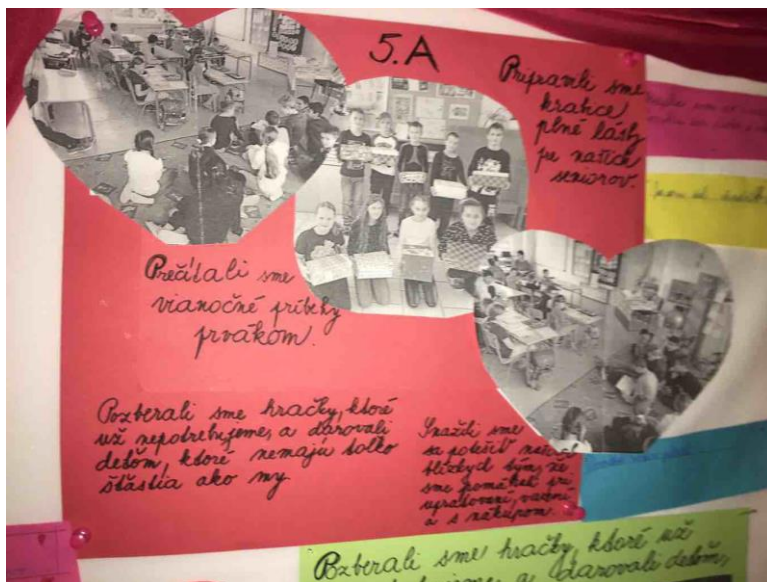 5.A
Pripravili sme
krabice
plné lásky
pre našich
seniorov.
Prečítali sme
vianočné príbehy
prvákom.
Pozberali sme hračky, ktoré
už nepotrebujeme, a darovali
deťom, ktoré nemajú toľko
šťastia ako my
Snažili sme
sa potešiť našich
blízkych tým, že
sme pomáhali pri
upratovaní, varení
a s nákupom.
Pozberali sme hračky, ktoré už
a darovali deťom,